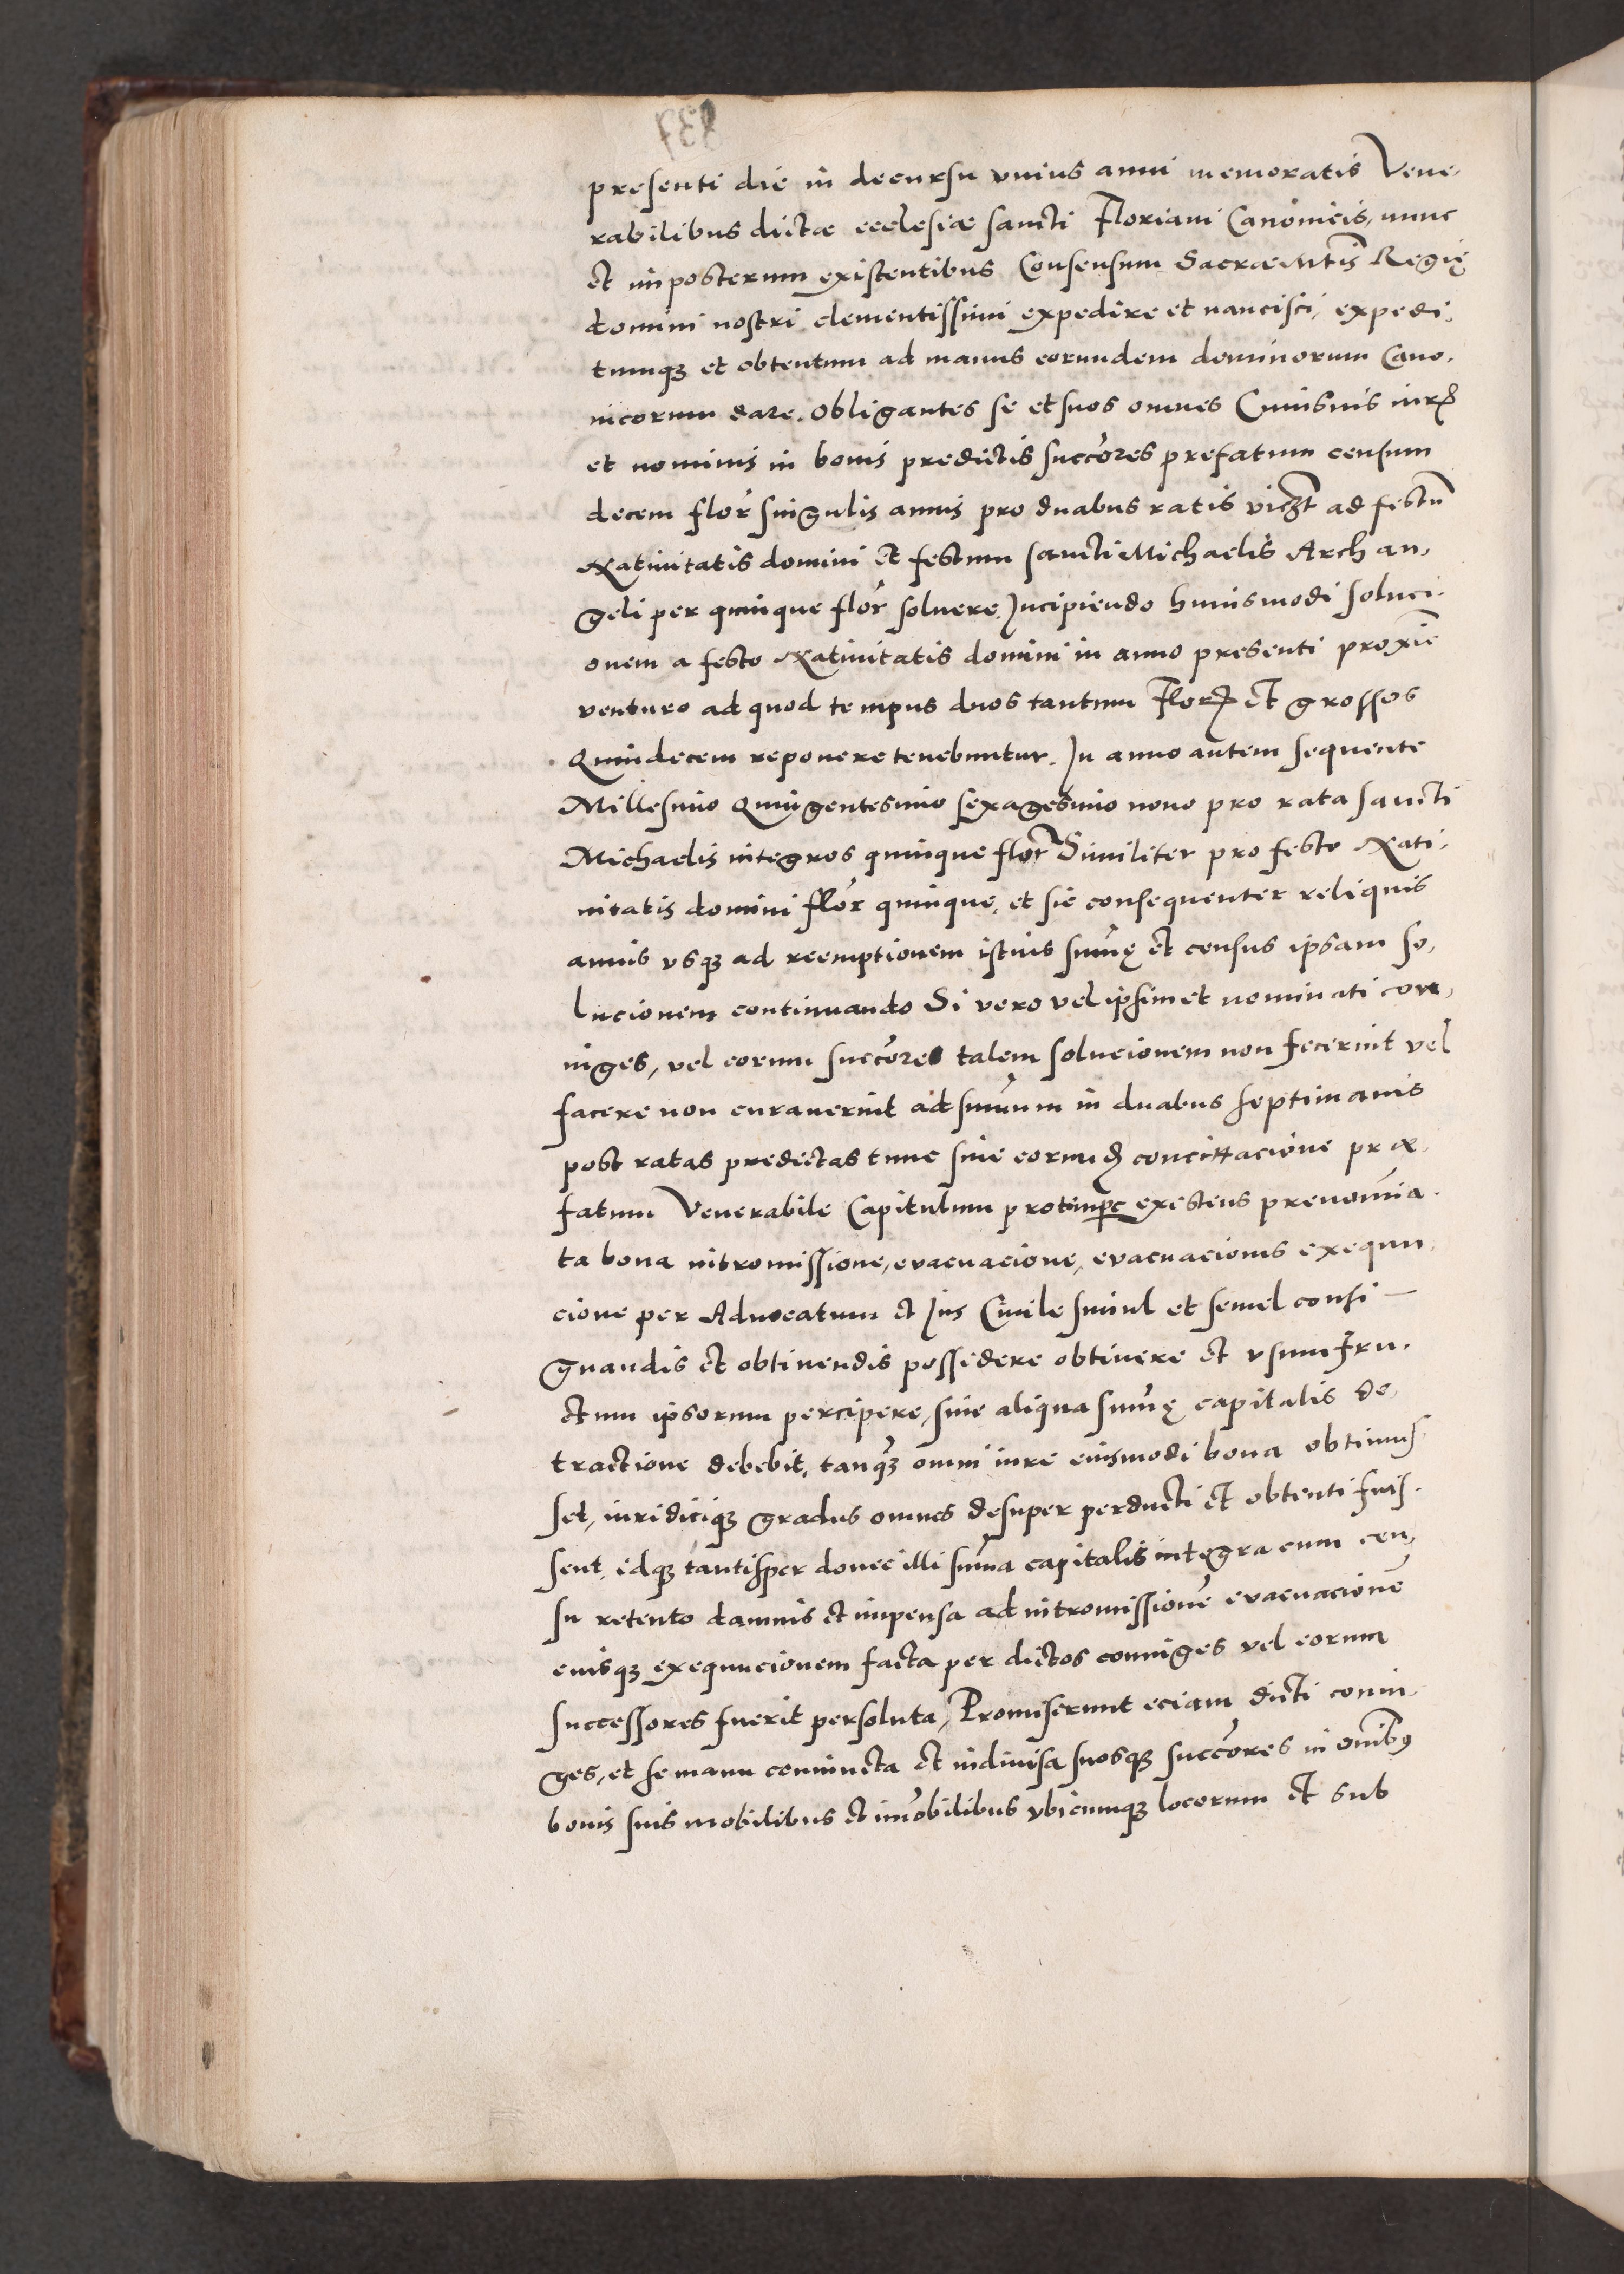 presenti die in decursu vnius anni memoratis Vene,
rabilibus dictæ ecclesiæ sancti Floriani Canonicis, nunc
et inposterum existentibus Consensum Sacræ Mtis Regię
domini nostri clementissimi expedire et nancisci, expedi,
tumqꝫ et obtentum ad manus eorundem dominorum Cano,
nicorum dare. Obligantes se et suos omnes Cuiusuis iurꝭ
et nominis in bonis predictis succores prefatum censum
decem flor singulis annis pro duabus ratis viczt ad festū
Natiuitatis domini et festum sancti Michaelis Archan,
geli per quinque flor soluere. Incipiendo huiusmodi soluci,
onem a festo Natiuitatis domini in anno presenti proxīe
venturo ad quod tempus duos tantum Florꝭ et grossos
Quindecem reponere tenebuntur. In anno autem sequente
Millesimo Quingentesimo sexagesimo nono pro rata sancti
Michaelis integros quinque flor Similiter pro festo Nati,
uitatis domini flor quinque, et sic consequenter reliquis
annis vsqꝫ ad reemptionem istius sum̄ę et census ipsam so,
lucionem continuando Si vero vel ipsimet nominati con,
iuges, vel eorum succores talem solucionem non fecerint vel
facere non curauerint ad sum̄um in duabus septimanis
post ratas predictas tunc sine eorumdꝭ concittacione præ,
fatum Venerabile Capitulum protunc existens prenomīa,
ta bona intromissione, evacuacione, evacuacionis exequu,
cione per Aduocatum et Ius Ciuile simul et semel consi—
gnandis et obtinendis possedere obtinere et vsumfru,
ctum ipsorum percipere, sine aliqua sum̄ę capitalis de,
tractione debebit, tanqꝫ omni iure eiusmodi bona obtinuis,
set, iuridiciqꝫ gradus omnes desuper perducti et obtenti fuis,
sent, idqꝫ tantisper donec illi sum̄a capitalis integra cum cen,
su retento damnis et impensa ad intromissionē evacuacionē
eiusqꝫ exequucionem facta per dictos coniuges vel eorum
successores fuerit persoluta, Promiserunt eciam dicti coniu,
ges, et se manu coniuncta et indiuisa suosqꝫ succores in om̄ibꝰ
bonis suis mobilibus et im̄obilibus vbicumqꝫ locorum et sub